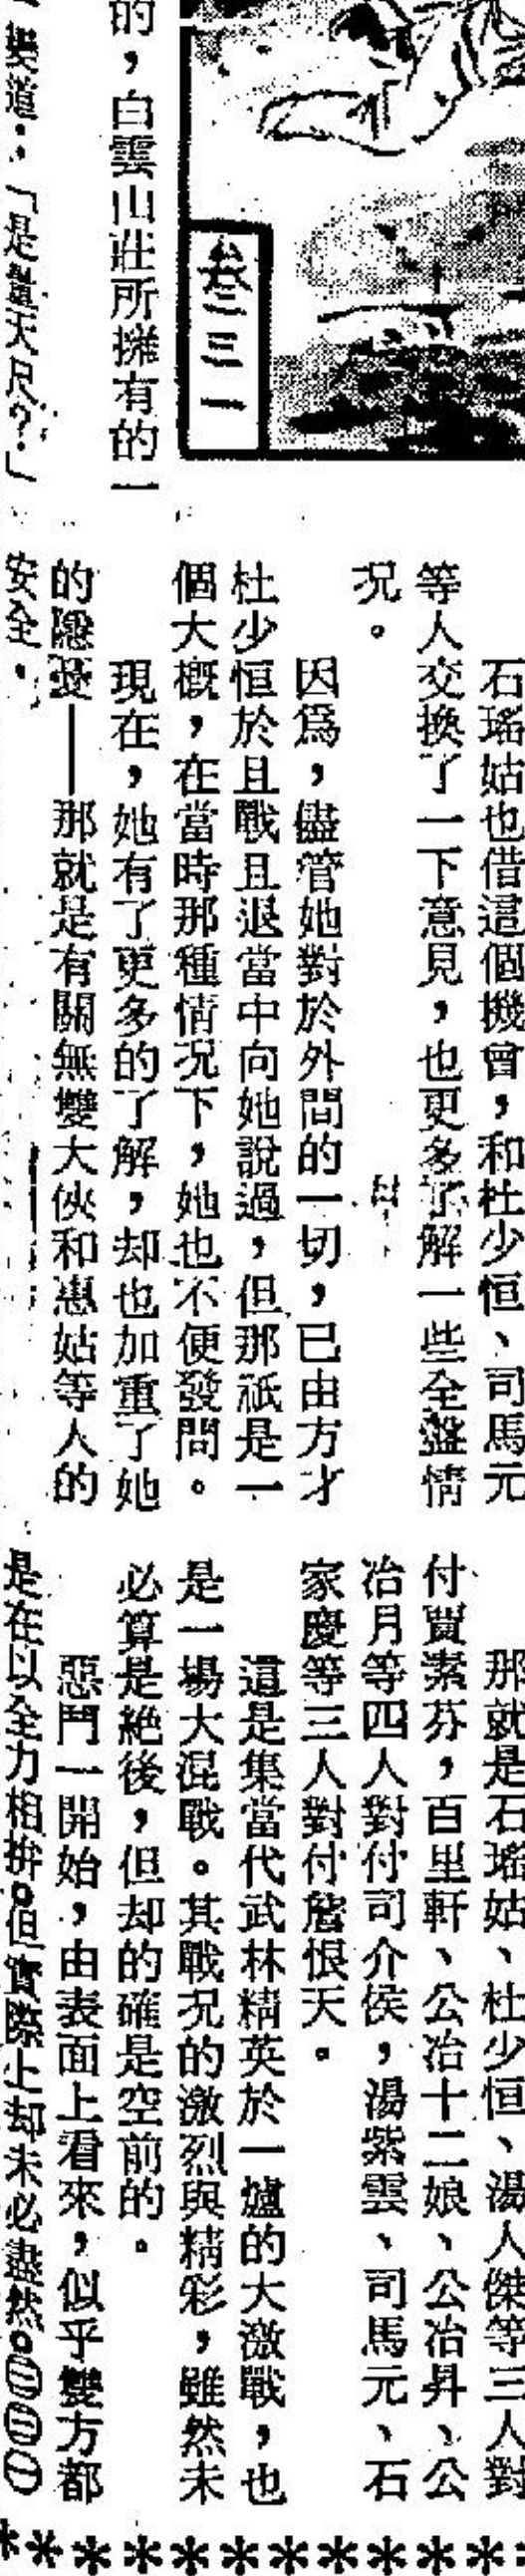 的，白雲山莊所擁有的一
道：「是量天尺？」
叁三一
石瑤姑也借這個機會，和杜少恒、司馬元
等人交換了一下意見，也更多了解一些全盤情
況。
因爲，儘管她對於外間的一切，已由方才
杜少恒於且戰且退當中向她說過，但那祇是一
個大概，在當時那種情況下，她也不便發問。
現在，她有了更多的了解，却也加重了她
的隱憂——那就是有關無雙大俠和惠姑等人的
安全。
那就是石瑤姑、杜少恒、湯人傑等三人對
付賈素芬，百里軒、公冶十二娘、公冶昇、公
冶月等四人對付司介侯，湯紫雲、司馬元、石
家慶等三人對付詹恨天。
這是集當代武林精英於一爐的大激戰，也
是一場大混戰。其戰況的激烈與精彩，雖然未
必算是絕後，但却的確是空前的。
惡鬥一開始，由表面上看來，似乎雙方都
是在以全力相拚。但實際上却未必盡然。㊂㊂㊀
************